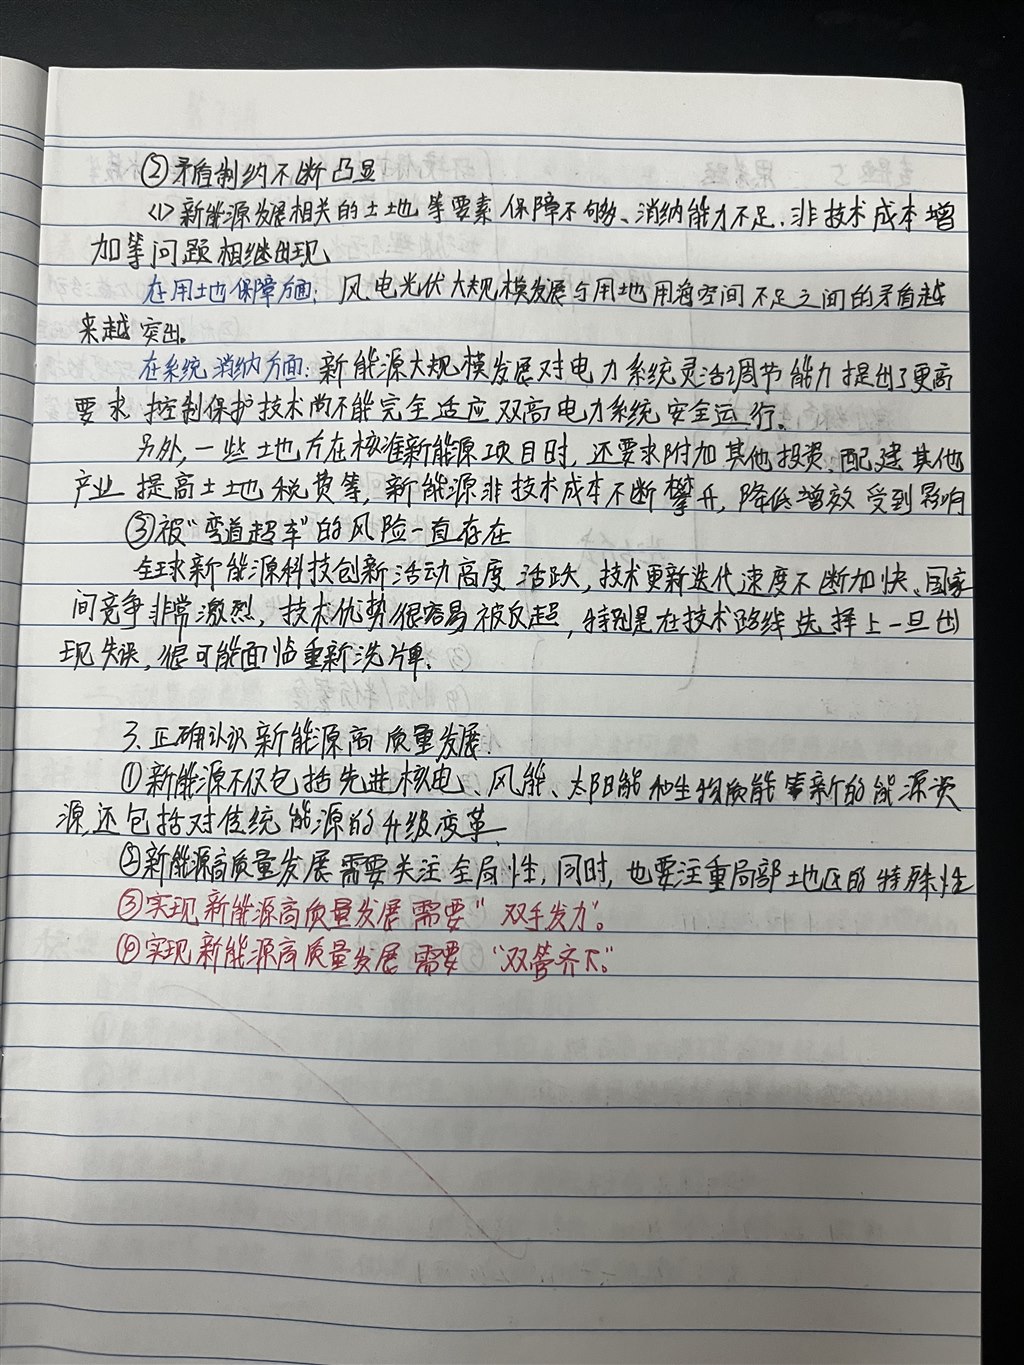 ②矛盾制约不断凸显
<1>新能源发展相关的土地等要素保障不够、消纳能力不足、非技术成本增
加等问题相继出现
在用地保障方面：风、电光伏大规模发展与用地用海空间不足之间的矛盾越
来越突出。
在系统消纳方面：新能源大规模发展对电力系统灵活调节能力提出了更高
要求 控制保护技术尚不能完全适应双高电力系统安全运行。
另外，一些土地方在核准新能源项目时，还要求附加其他投资、配建其他
产业 提高土地税费等，新能源非技术成本不断攀升，降低增效受到影响
③被“弯道超车”的风险一直存在
全球新能源科技创新活动高度活跃，技术更新迭代速度不断加快、国家
间竞争非常激烈，技术优势很容易被反超，特别是在技术路线选择上一旦出
现失误，很可能面临重新洗牌、
3、正确认识新能源高质量发展、
①新能源不仅包括先进核电、风能、太阳能和生物质能等新的能源资
源，还包括对传统能源的升级变革、
②新能源高质量发展需要关注全局性，同时，也要注重局部地区的特殊性
③实现新能源高质量发展需要“双手发力”。
④实现新能源高质量发展需要“双管齐下”。